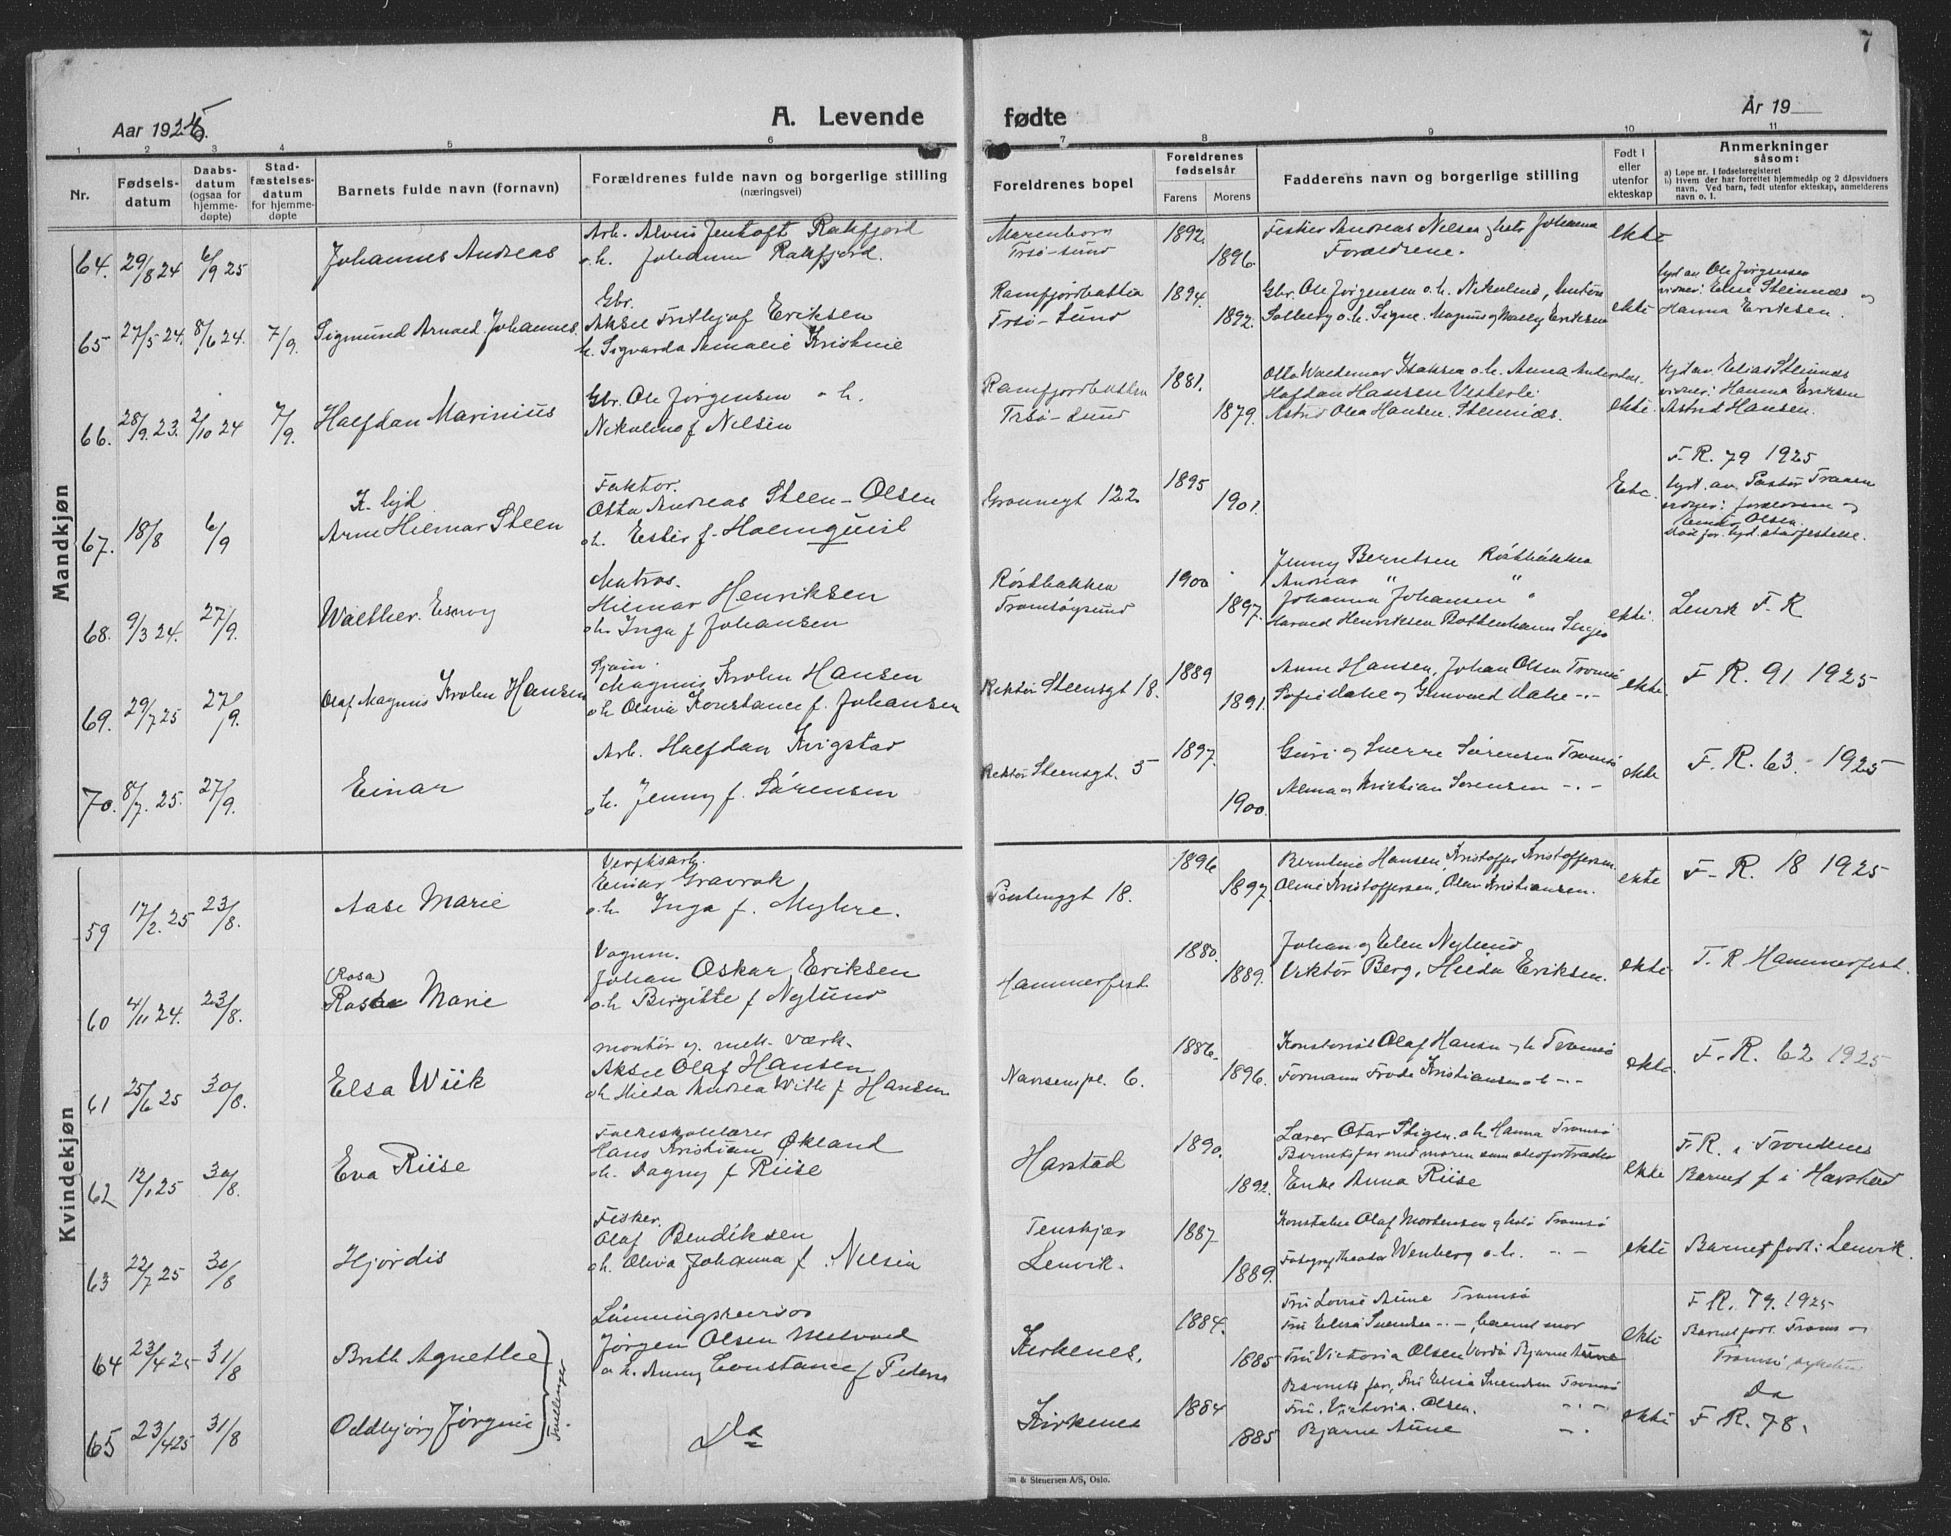 7
Aar 1925.
A. Levende
fødte
År 19
1 2 3 4 5 6 7 8 9 10 11
Nr.
Fødsels-
datum
Daabs-
datum
(ogsaa for
hjemme-
døpte)
Stad-
fæstelses-
datum
for hjemme-
døpte
Barnets fulde navn (fornavn)
Forældrenes fulde navn og borgerlige stilling
(næringsvei)
Foreldrenes bopel
Foreldrenes
fødselsår
Farens Morens
Fadderens navn og borgerlig stilling
Født i
eller
utenfor
ekteskap
Anmerkninger
såsom:
a) Løpe nr. i fødselsregisteret
b) Hvem der har forrettet hjemmedåp og 2 dåpsvidners
navn. Ved barn, født utenfor ekteskap, anmelderens
navn o. l.
Mandkjøn
64. 29/8 24 6/9 25 Johannes Andreas
Arb. Alvin Jentoft Rakfjord
o.h. Johanna Rakfjord.
Marenborg
Trsø-sund
1892. 1896.
Fisker Andreas Nilsen og hstr Johanna
Forældrene.
ekte
65 27/5-24. 8/6 24. 7/9. Sigmund Arnold Johannes
Gbr.
Aksel Frithjof Eriksen
h. Sigvarda Amalie Kristine
Ramfjordbotten
Trsø-Sund
1894. 1892.
Gbr. Ole Jørgensen o.h. Nikoline, Anton
Solberg o.h. Signe. Magnus og Wally Eriksen
ekte
hjd av Ole Jørgensen
vidner: Elise Steinnæs og
Hanna Eriksen.
66. 28/9. 23. 2/10 24 7/9. Halfdan Marinius
Gbr. Ole Jørgensen o.h.
Nikoline f Nilsen
Ramfjordbotten
Trsø-Sund
1881. 1879.
Otto Waldemar Isaksen o.h. Anna
Halfdan Hansen Vesterli
Astrid Olea Hansen. Steinnæs.
ekte
Hjd av Elias Steinnæs
vidner: Hanna Eriksen
Astrid Hansen.
67. 18/8 6/9
Arne Hilmar Steen
Faktor.
Otto Andreas Steen-Olsen
o.h. Ester f. Holmquist
Grønnegt 122
1895 1901.
Ekte.
F. R. 79 1925
hjd. av Pastor Traaen
vidner: forældrene og
Einar Olsen.
68. 9/3 24. 27/9. Walther
Matros.
Hilmar Henriksen
o.h. Inga f Johansen
Røstbakken
Tromsøysund
1900 1897.
Jenny Berntsen Røstbakken
Andreas " "
Johanna Johansen "
Harald Henriksen
ekte.
Lenvik F. R
69. 29/7 25 27/9. Olaf Magnus Krohn Hansen
Magnus Krohn Hansen
o.h Olivia Konstance f. Johansen
Rektor Steensgt 18.
1889 1891.
Anne Hansen, Johan Olsen Tromsø
Sofie Aake og Gunvord Aake -.-
ekte.
F R. 91 1925
70. 8/7. 25. 27/9. Einar
Arb. Halfdan Kvigstad
o.h. Jenny f. Sørensen
Rektor Steensgt. 5
1897. 1900.
Guri og Sverre Sørensen Tromsø
Alma og Kristian Sørensen -.-
ekte
F. R. 63. - 1925
Kvindekjøn
59 17/2. 25 23/8. Aase Marie
Verftsarb.
Einar Gravrok
o.h. Inga f. Myhre.
18.
1896 1897.
Berntine Hansen, Kristoffer Kristoffersen.
Oline Kristoffersen, Olav Kristiansen.
ekte
F-R. 18 1925
60 4/11 24. 23/8. (Rosa)
Rosa Marie
Vognm.
Johan Oskar Eriksen
o.h Birgitte f Nylund
Hammerfest.
1880. 1889.
Johan og Elen Nylund
Viktor Berg, Hilda Eriksen.
ekte
F. R Hammerfest.
61 25/6 25 30/8. Elsa Wiik
montør v. mek. værk.
Aksel Olaf Hansen
o.h Hilda Andrea Wiik f Hansen
Nansenspl. 6.
1886. 1896.
Konstabel Olaf Hansen o.h Tromsø
Formann Frode Kristiansen o.h -.-
ekte.
F. R. 62 1925
62 12/1 25 30/8. Eva Riise
Folkeskolelærer
Hans Kristian Økland
o.h. Dagny f Riise
Harstad
1890. 1892.
Lærer Otar Stigen. o.h Hanna Tromsø
Barnets far med moren som
Enke Anna Riise
ekte
F. R. i Trondenes
Barnet f i Harstad
63 22/7 25 30/8 Hjørdis
Fisker.
Olaf Bendiksen
o.h. Olivia Johanna f. Nilsen
Tenskjær
Lenvik.
1887 1889.
Konstabel Olaf Mortensen og hstr Tromsø
Wenberg o.h. -.-
ekte
Barnet født i Lenvik.
64 23/4 25 31/8 Brith Agnethe
Tvillinger
Jørgen Olsen
o.h. Anny Constance f Peders
Kirkenes.
1884. 1885
Fru Lovise Aune Tromsø
Fru Elisa Svendsen -.-, barnets mor
Fru Victoria Olsen Vardø Bjarne Aune
ekte
F R. 79. 1925
Barnet født Troms og
Tromsø sykehus
65 23/4 25 31/8 Oddbjørg Jørgine
Da
Kirkenes
1884 1885
Barnets far, Fru Elisa Svendsen Tromsø
Fru. Victoria. Olsen. -.-
Bjarne Aune -.-
ekte
Da
F R. 78.
m & Stenersen A/S, Oslo.